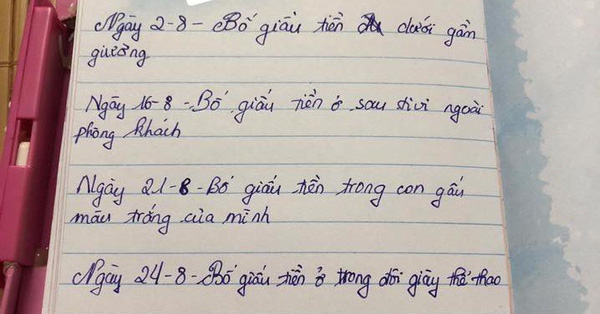 Ngày 2-8 - Bố giấu tiền dưới gầm
giường
Ngày 16-8 - Bố giấu tiền ở sau tivi ngoài
phòng khách
Ngày 21-8 - Bố giấu tiền trong con gấu
màu trắng của mình
Ngày 24-8 - Bố giấu tiền ở trong đôi giày thể thao